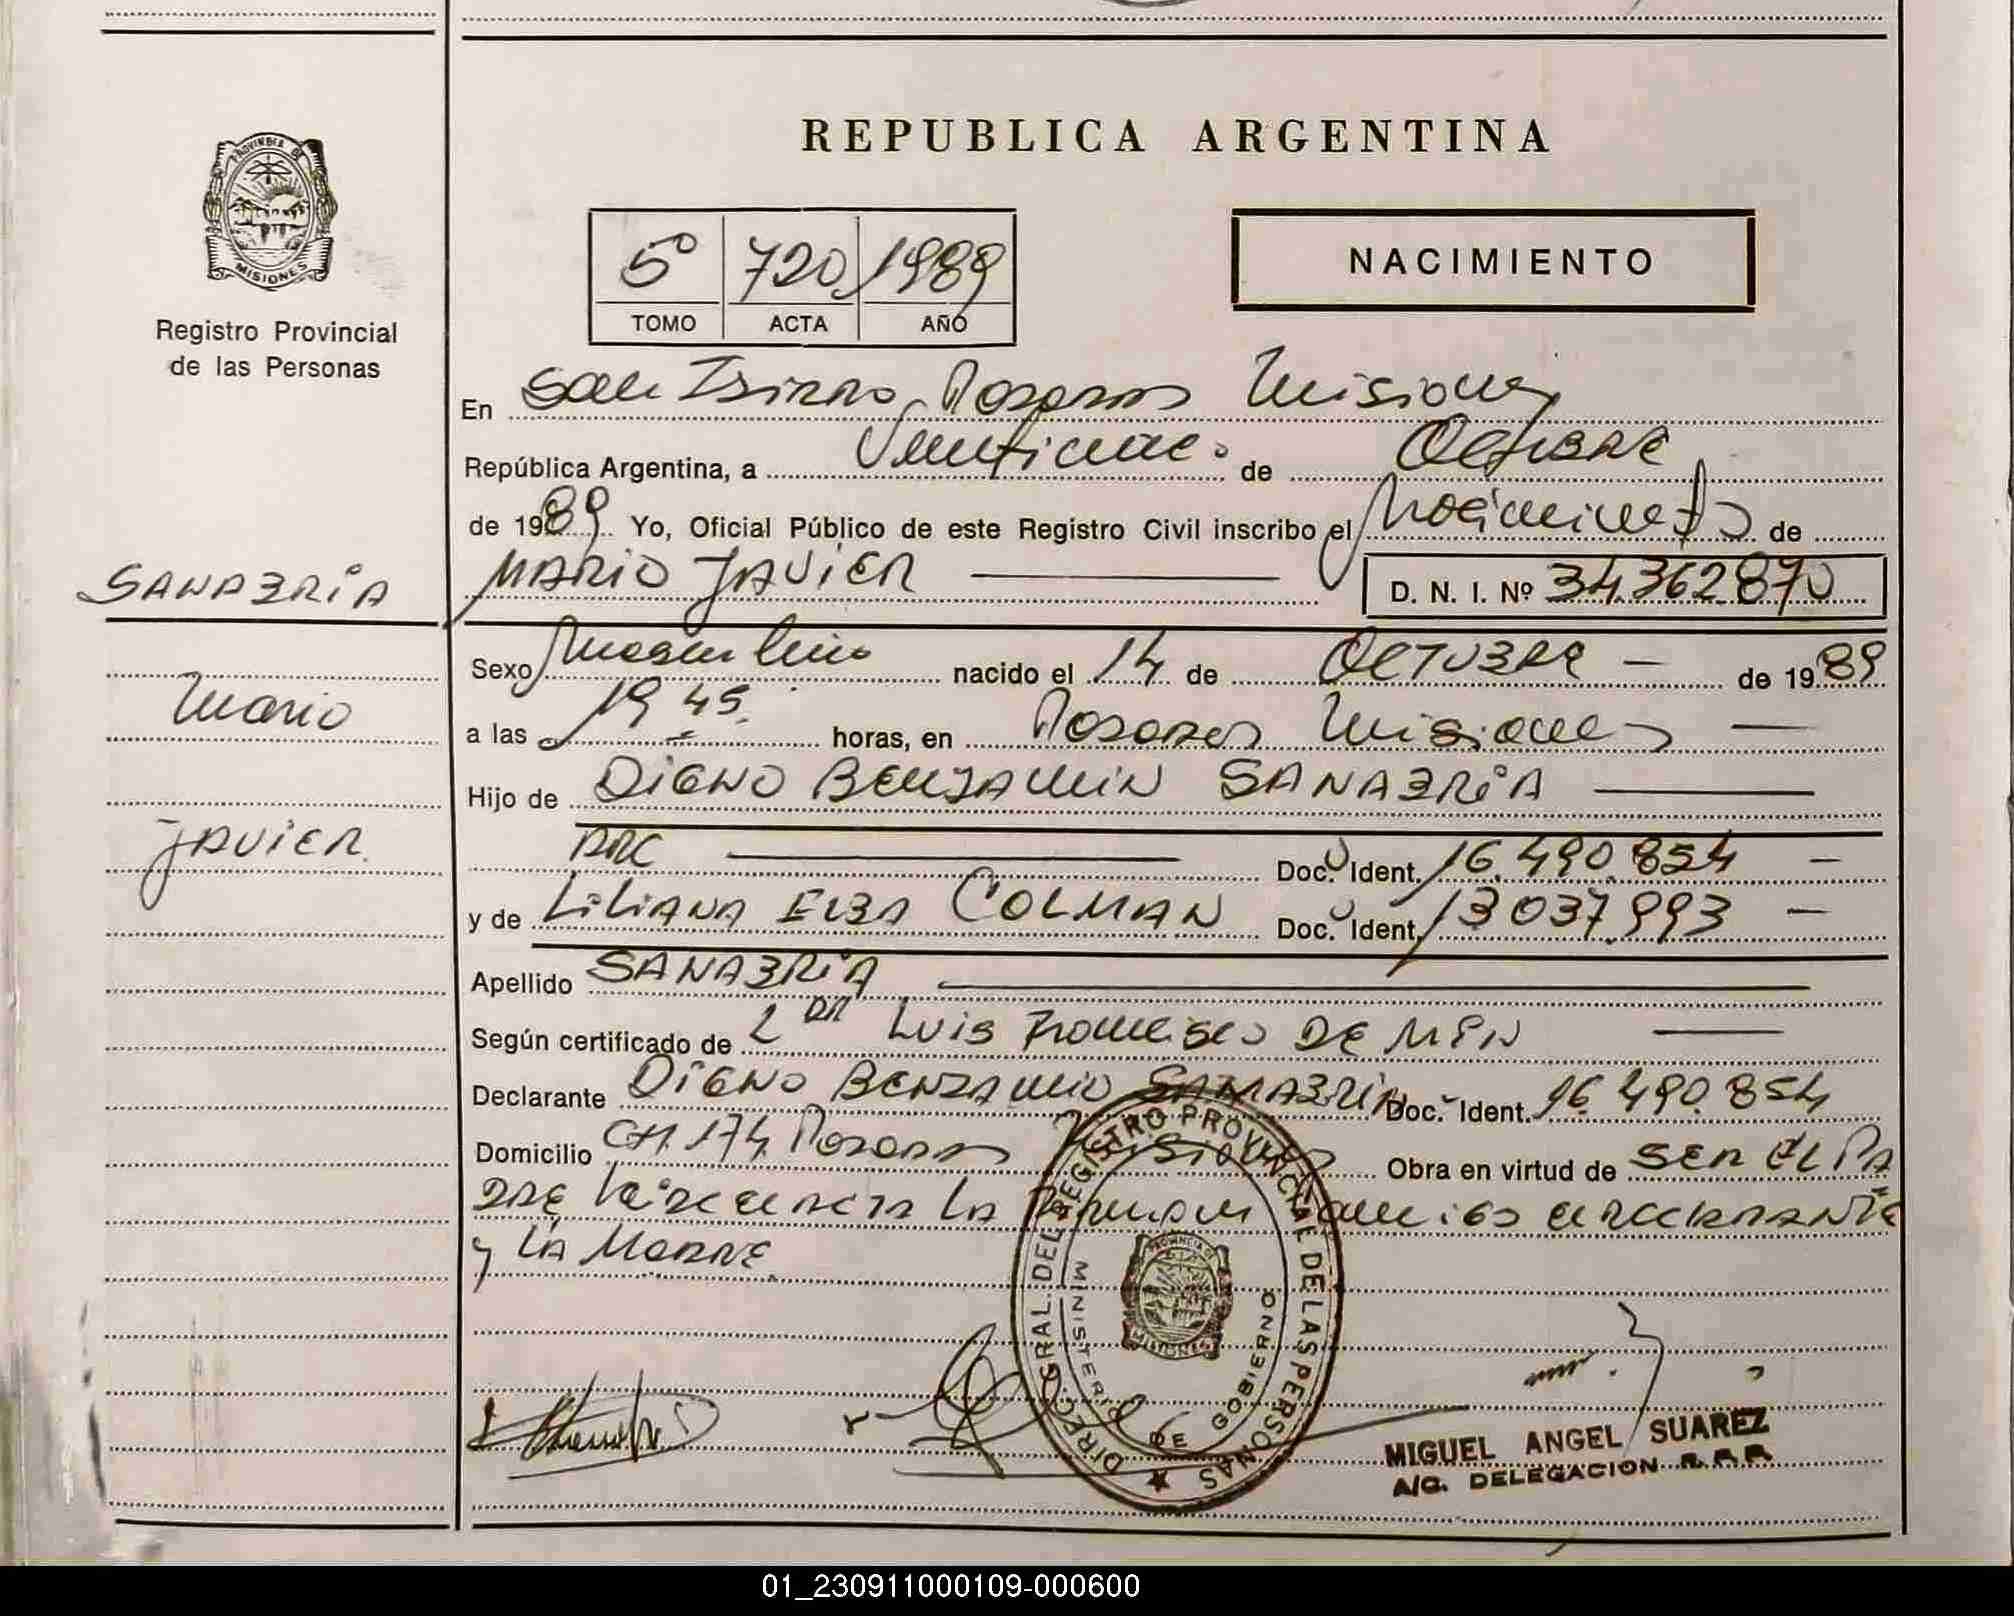 REPUBLICA ARGENTINA
PROVINCIA DE
MISIONES
Registro Provincial
de las Personas
5º 720 1989
TOMO ACTA AÑO
NACIMIENTO
En San Isidro, Posadas Misiones
República Argentina, a Veinticinco de Octubre
de 1989 Yo, Oficial Público de este Registro Civil inscribo el Nacimiento de
SANABRIA
MARIO JAVIER D. N. I. Nº 34.362.870
Sexo Masculino nacido el 14 de OCTUBRE de 1989
Mario
a las 19 45 horas, en Posadas Misiones
Hijo de DIGNO BENJAMIN SANABRIA
JAVIER
ARG Doc. Ident. 16.490.854
y de LILIANA ELBA COLMAN Doc. Ident. 13037.993
Apellido SANABRIA
Según certificado de L DR Luis Francisco DE MIN
Declarante DIGNO BENJAMIN SANABRIA Doc. Ident. 16.490.854
Domicilio CH. 174 Posadas Misiones Obra en virtud de SER EL PA
DRE LA y LA MADRE
DIREC. GRAL. DEL REGISTRO PROVINCIAL DE LAS PERSONAS
MINISTERIO DE GOBIERNO
PROVINCIA DE
MISIONES
MIGUEL ANGEL SUAREZ
A/C. DELEGACION R.P.P.
01_230911000109-000600